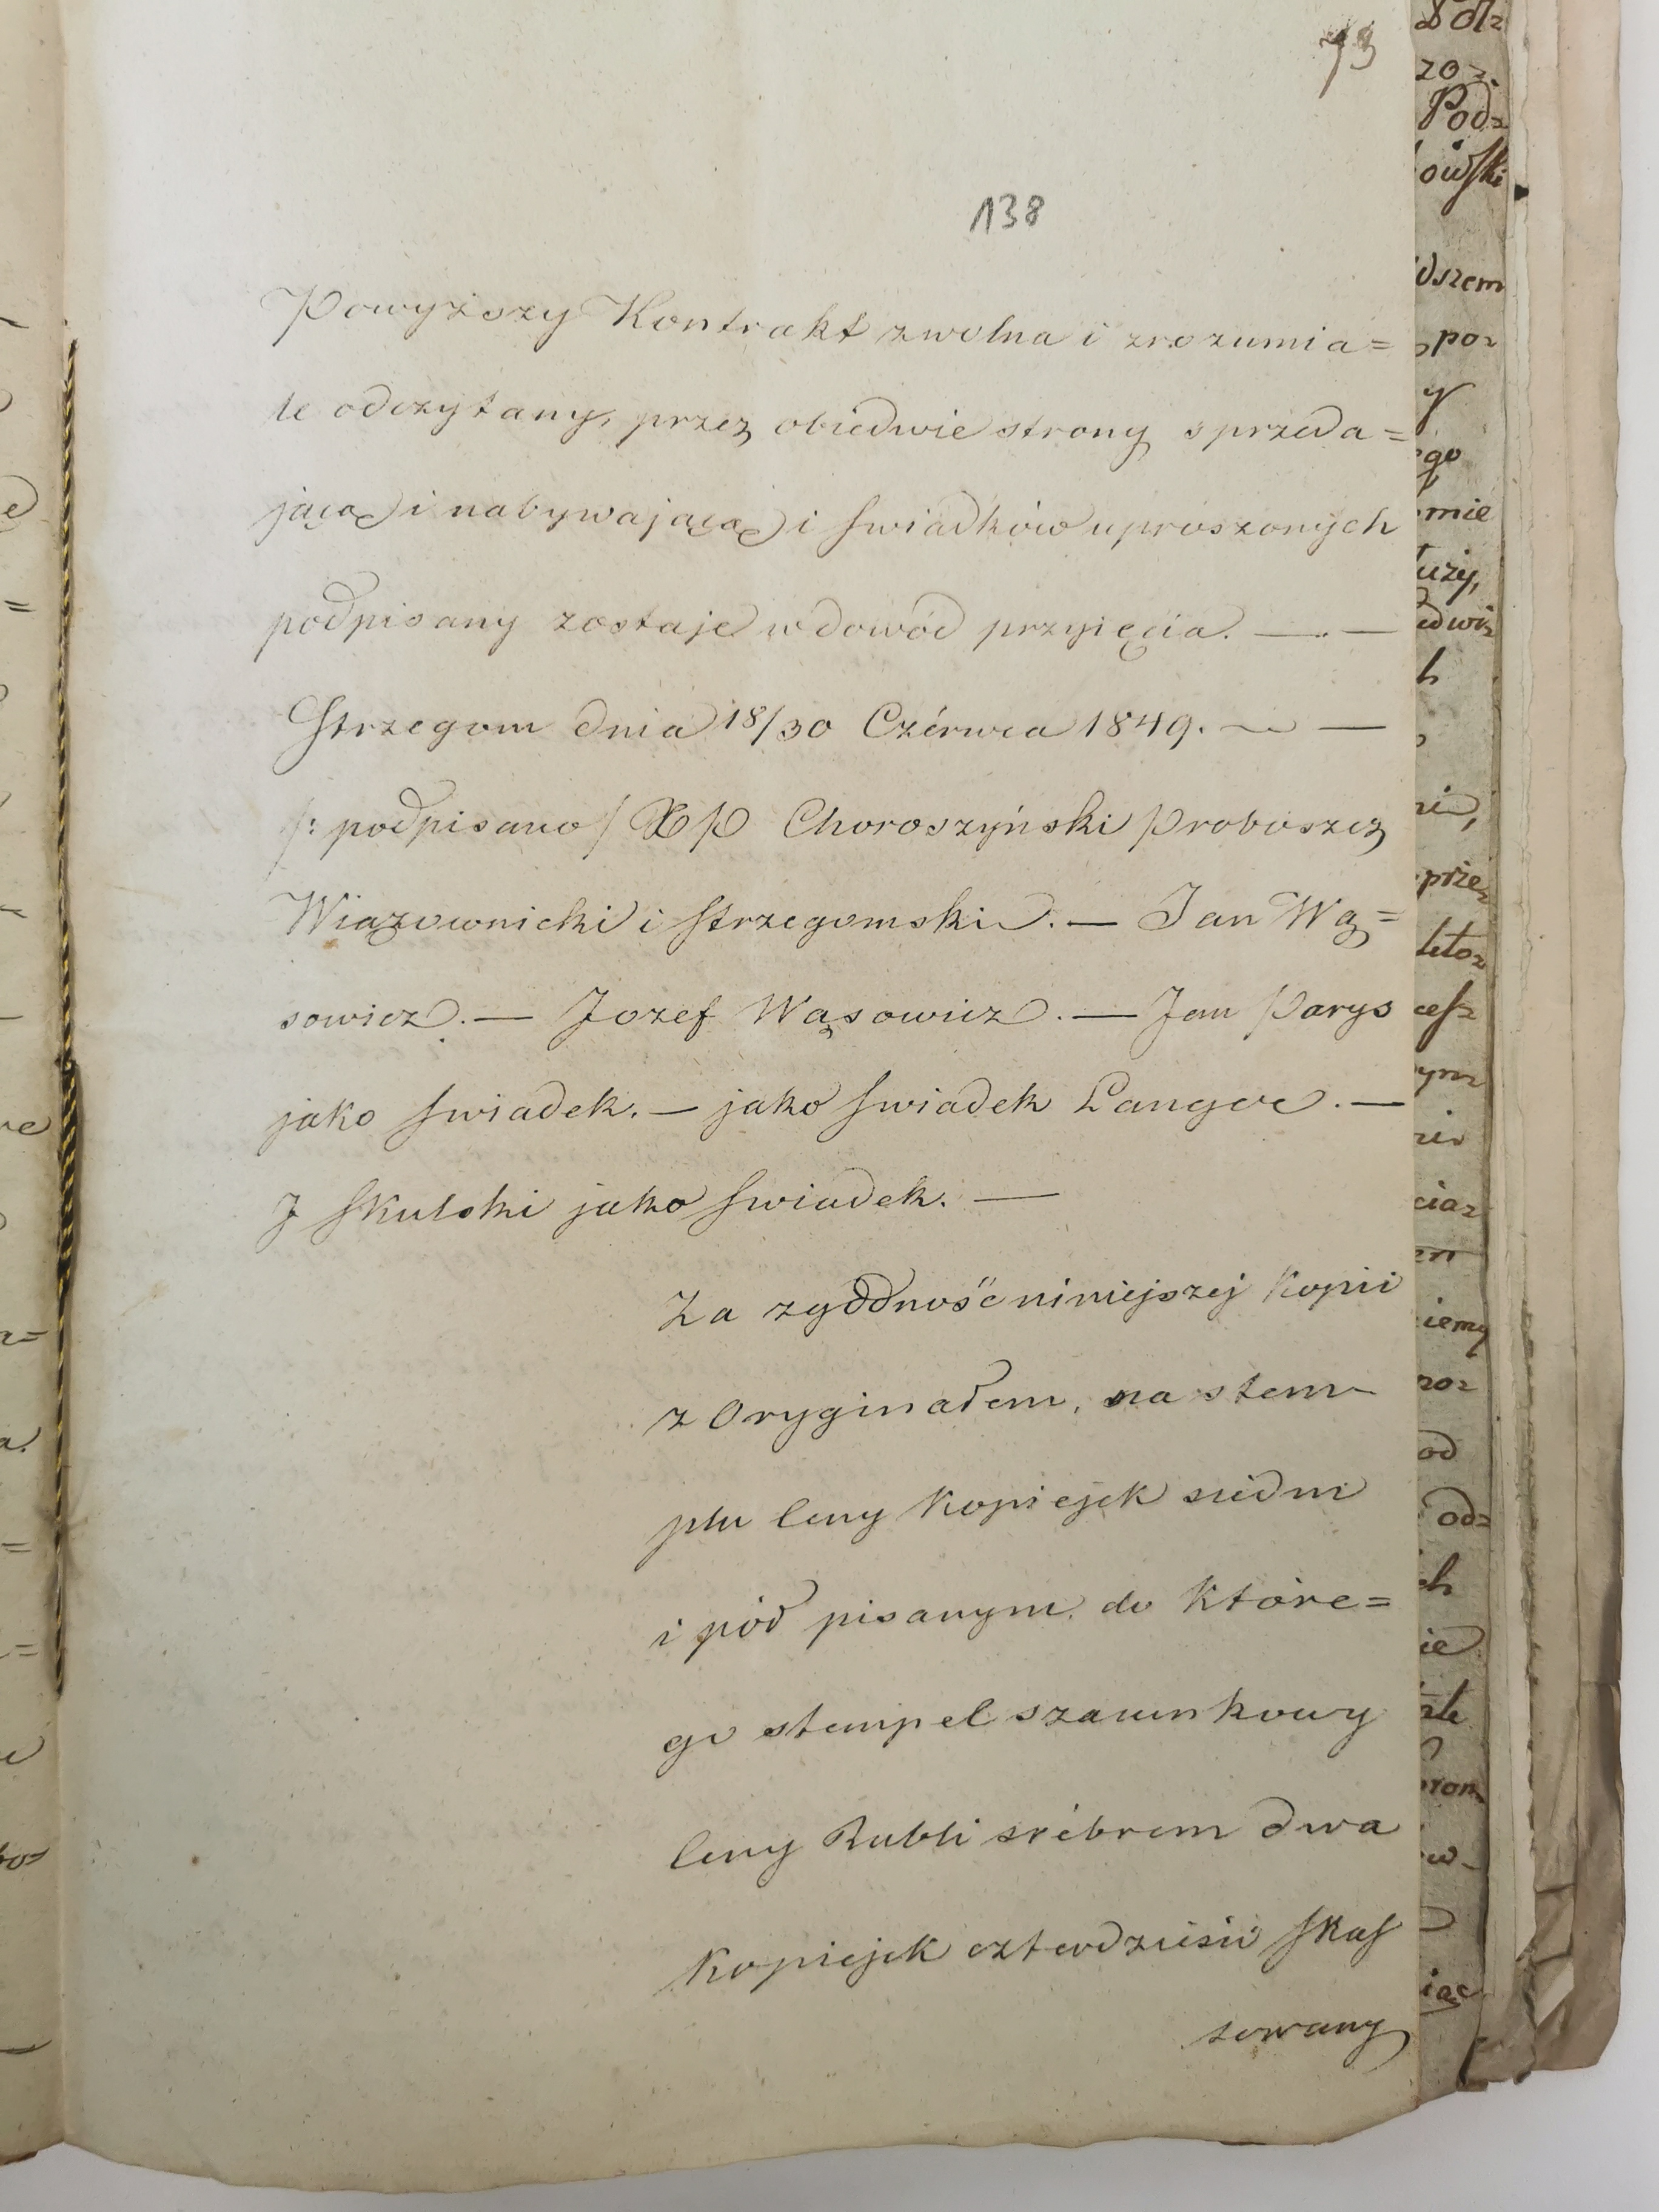 73
138
Powyższy Kontrakt zwolna i zrozumia=
le odczytany, przez obiedwie strony sprzeda=
jącą i nabywającą i swiadków uproszonych
podpisany zostaje w dowód przyięcia. —.—
Strzegom dnia 18/30 Czérwca 1849. ~ —
/: podpisano / X P Choroszyński Proboszcz
Wiązownicki i Strzegomski. — Jan Wą=
sowicz. — Jozef Wąsowicz. — Jan Parys
jako swiadek. — jako swiadek Langve. —
J Skulski jako swiadek. —
Za zgodność niniejszej Kopii
z Oryginałem, na stem-
plu Ceny Kopiejek siedm
i pół pisanym, do które=
go stempel szacunkowy
Ceny Rubli srébrem dwa
Kopiejek czterdzieści skas
sowany